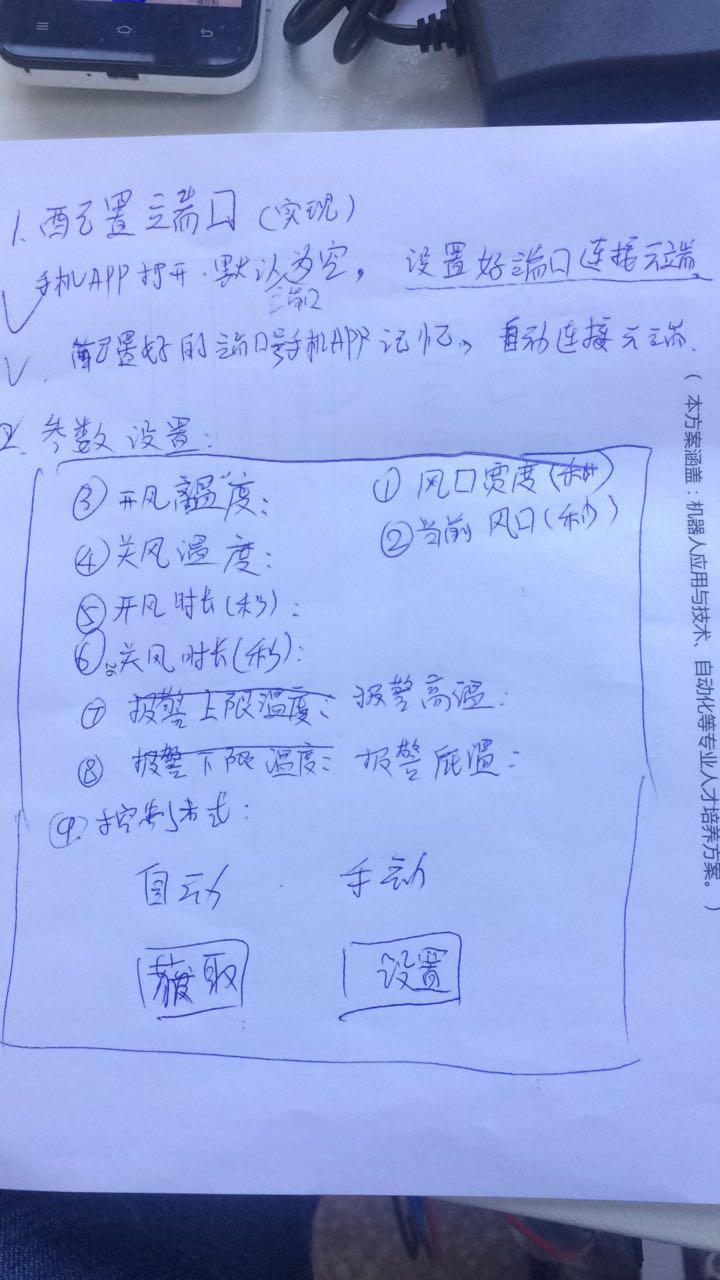 1. 配置端口 (实现)
手机APP打开.默认为空, 设置好端口连接云端.
端口
配置好的端口号手机APP记忆, 自动连接云端.
2. 参数设置:
③ 开风温度: ① 风口宽度(秒)
④ 关风温度: ② 当前风口(秒)
⑤ 开风时长(秒):
⑥ 关风时长(秒):
⑦ 报警上限温度: 报警高温:
⑧ 报警下限温度: 报警底温:
⑨ 控制方式:
自动 手动
获取 设置
(本方案涵盖:机器人应用与技术、自动化等专业人才培养方案。)